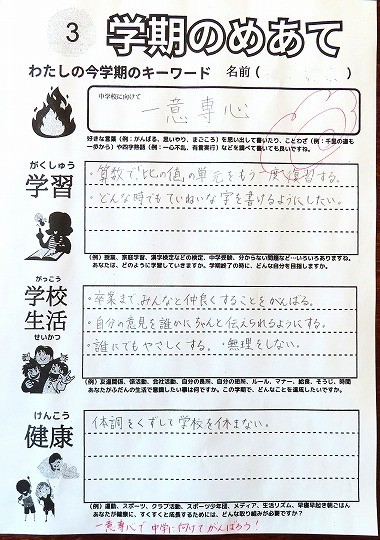 3 学期のめあて
わたしの今学期のキーワード 名前( )
中学校に向けて
一意専心
好きな言葉(例:がんばる、思いやり、まごころ)を思い出して書いたり、ことわざ(例:千里の道も
一歩から)や四字熟語(例:一心不乱、有言実行)などを調べて書いても良いですね。
がくしゅう
学習
・算数で「比の値」の単元をもう一度復習する。
・どんな時でもていねいな字を書けるようにしたい。
(例)授業、家庭学習、漢字検定などの検定、中学受験、分からない問題など…いろいろありますね。
あなたは、どのように学習していきますか。学期終了の時に、どんな自分を目指しますか。
がっこう
学校
生活
せいかつ
・卒業まで、みんなと仲良くすることをがんばる。
・自分の意見を誰かにちゃんと伝えられるようにする。
・誰にでもやさしくする。・無理をしない。
(例)友達関係、係活動、会社活動、自分の長所、自分の短所、ルール、マナー、給食、そうじ、時間
あなたがふだんの生活で意識したい事は何ですか。この学期で、どんなことを達成したいですか。
けんこう
健康
体調をくずして学校を休まない。
(例)運動、スポーツ、クラブ活動、スポーツ少年団、メディア、生活リズム、早寝早起き朝ごはん
あなたが健康に、すくすくと成長するためには、どんな取り組みが必要ですか?
一意専心で中学に向けてがんばろう!